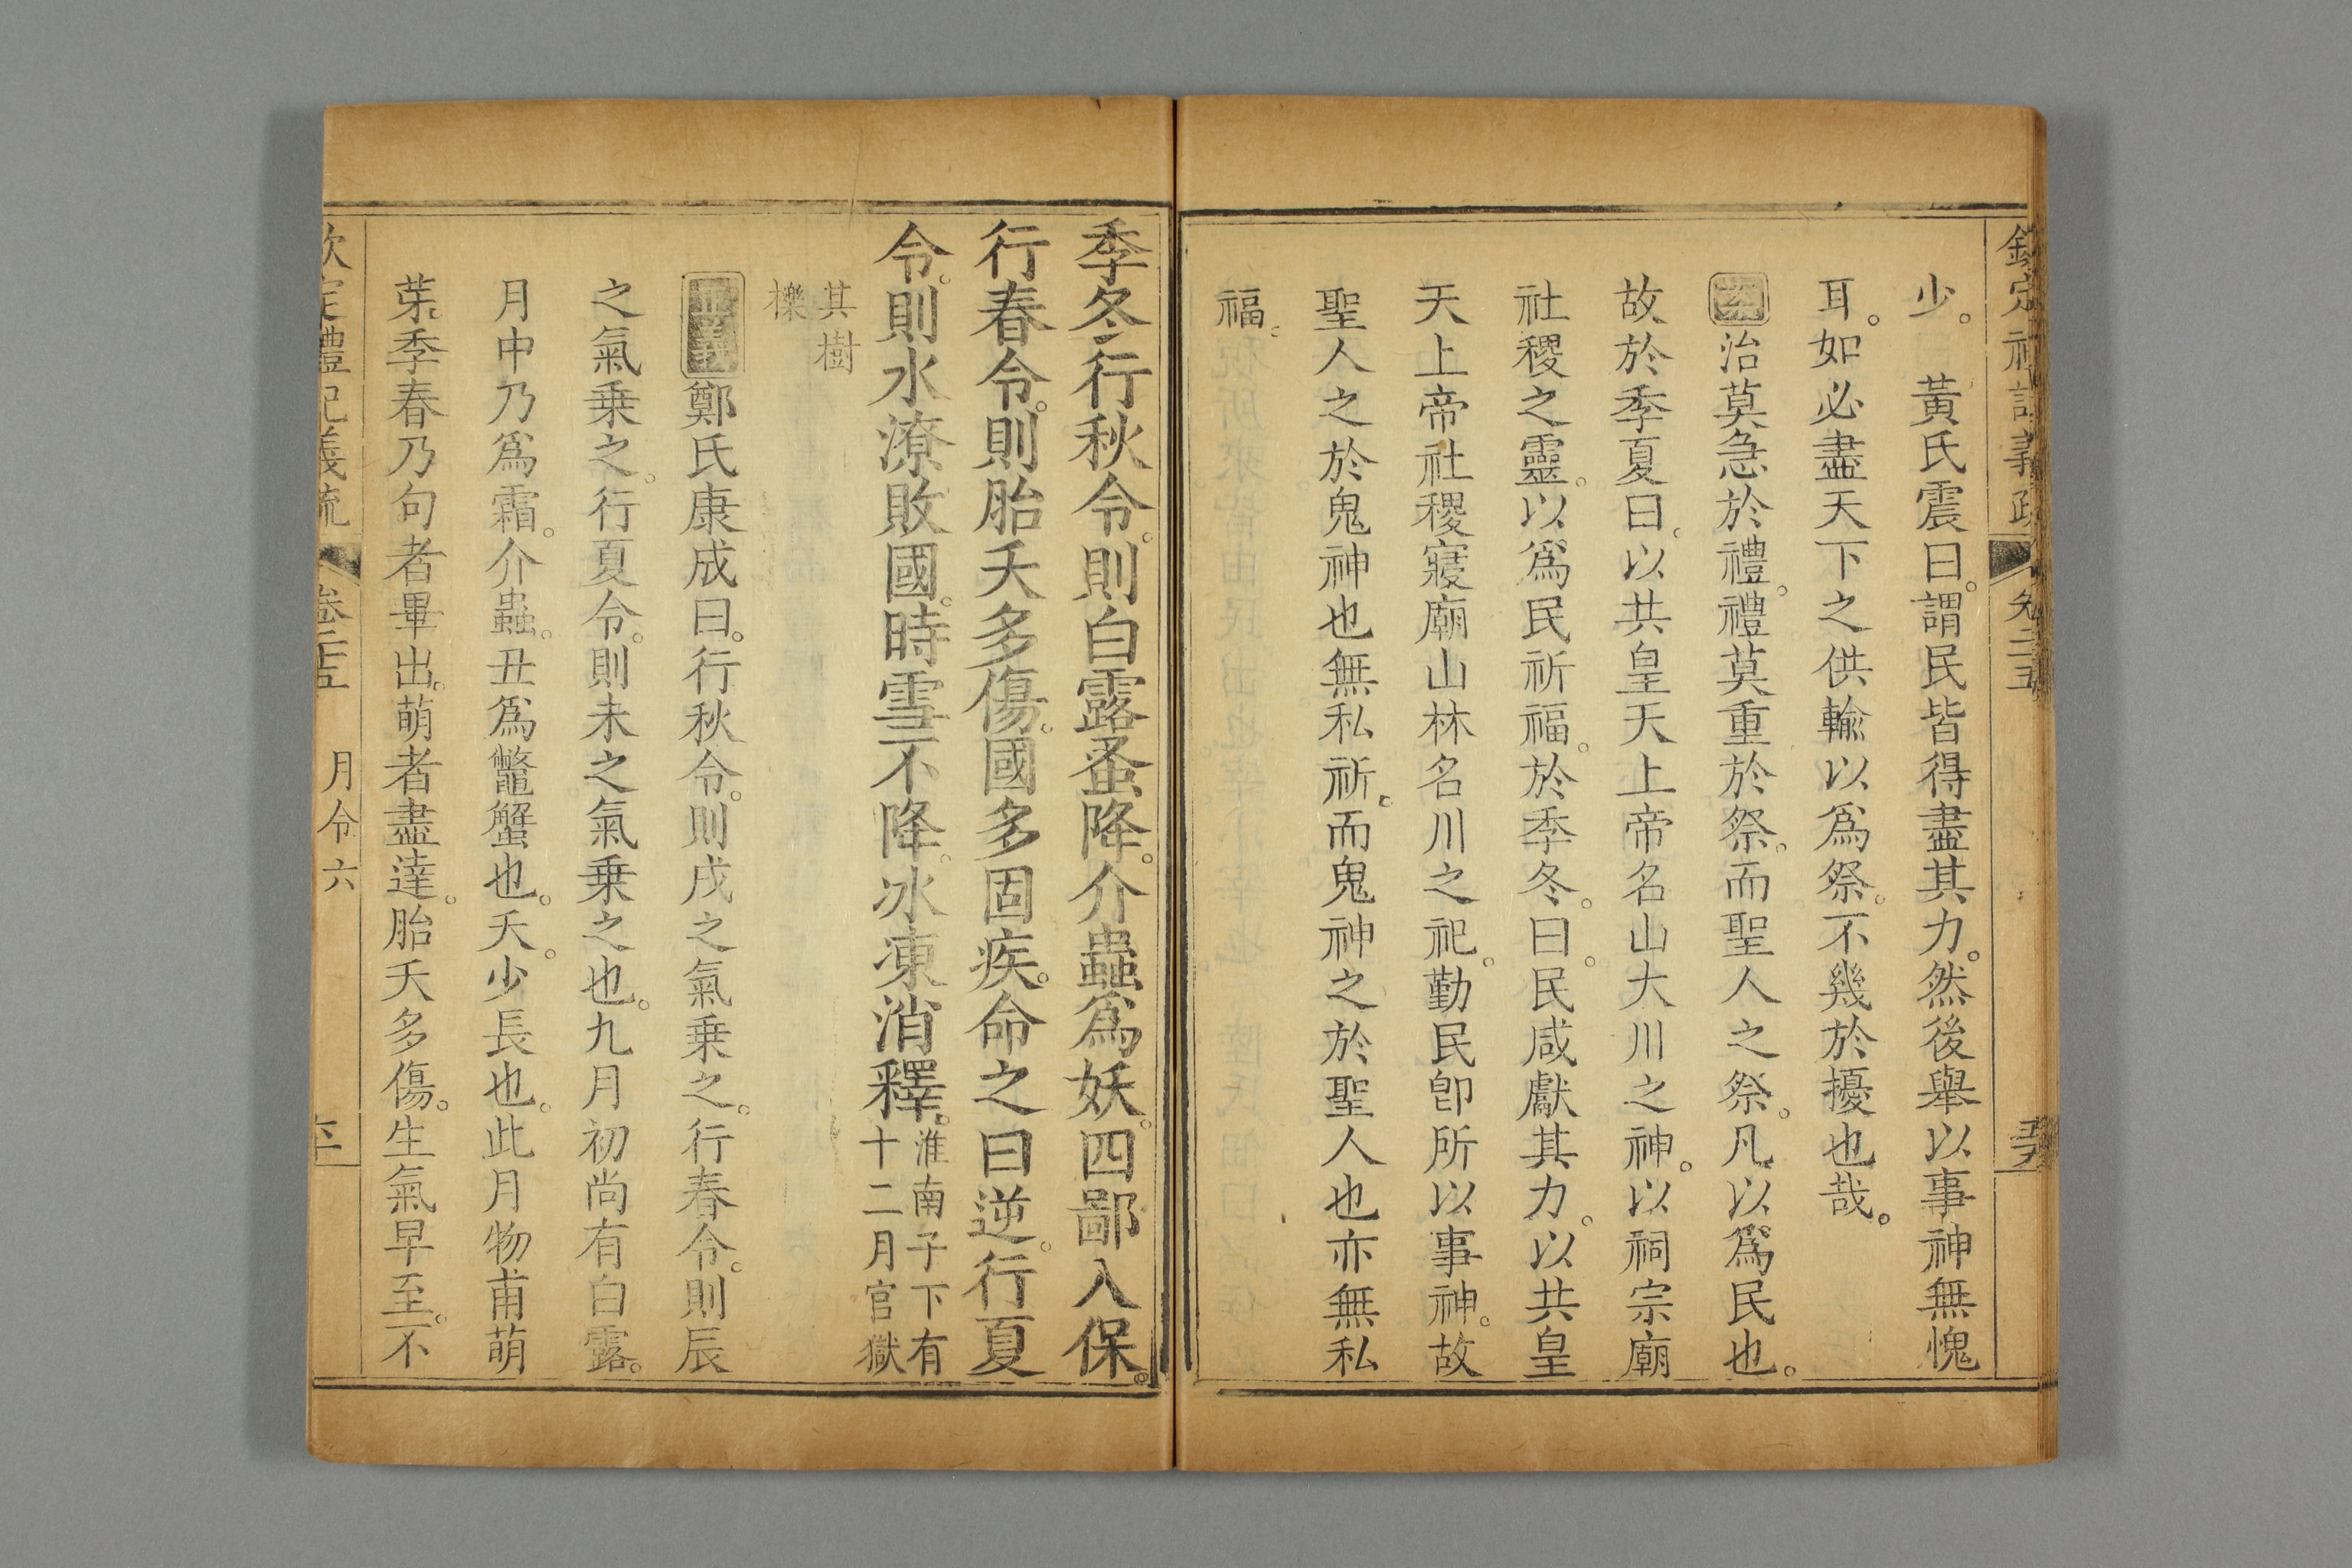 少。　黃氏震曰。謂民皆得盡其力。然後舉以事神無愧
耳。如必盡天下之供輸以爲祭。不幾於擾也哉。
案治莫急於禮。禮莫重於祭。而聖人之祭。凡以爲民也。
故於季夏曰。以共皇天上帝名山大川之神。以祠宗廟
社稷之靈。以爲民祈福。於季冬。曰。民咸獻其力。以共皇
天上帝社稷寢廟山林名川之祀。勤民卽所以事神。故
聖人之於鬼神也無私祈。而鬼神之於聖人也亦無私
福。
季冬行秋令。則白露蚤降。介蟲爲妖。四鄙入保。
行春令。則胎夭多傷。國多固疾。命之曰逆。行夏
令。則水潦敗國。時雪不降。冰凍消釋。
淮南子下有
十二月官獄
其樹
櫟
正義鄭氏康成曰。行秋令。則戌之氣乗之。行春令。則辰
之氣乗之。行夏令。則未之氣乗之也。九月初尚有白露。
月中乃爲霜。介蟲。丑爲鼈蟹也。夭。少長也。此月物甫萌
芽。季春乃句者畢出。萌者盡達。胎夭多傷。生氣早至。不
月令六